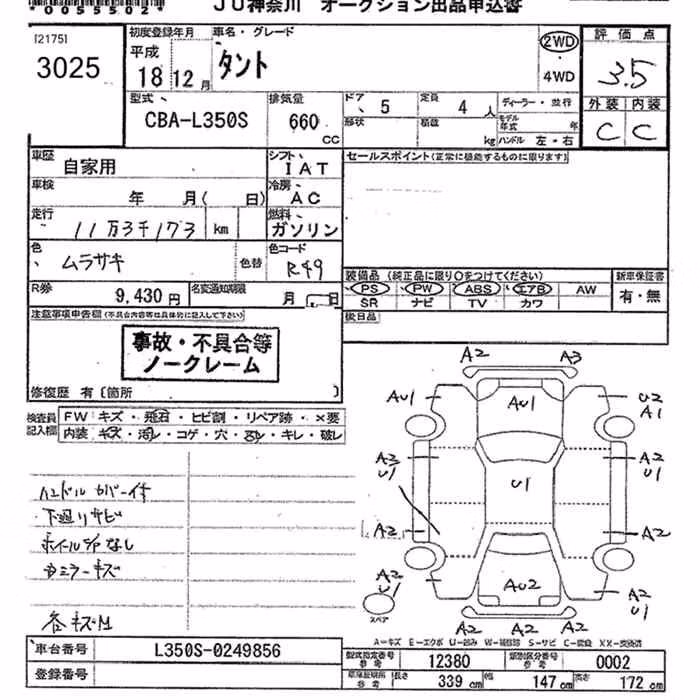 *0055502*
JU神奈川 オークション出品申込書
[2175]
3025
初度登録年月
平成
18 12月
車名・グレード
タント
2WD
4WD
評価点
3.5
外装 内装
C C
型式
CBA-L350S
排気量
660
CC
ドア 5
定員 4 人
形状
積載
kg
ディーラー・並行
モデル年式 年
ハンドル 左・右
車歴
自家用
シフト
IAT
セールスポイント(正常に機能するものに限ります)
車検
年 月( 日)
冷房
AC
走行
11万3千173 km
燃料
ガソリン
色
ムラサキ
色替
色コード
R49
R券
9,430円
名変通知期限
月 日
装備品 (純正品に限り○をつけてください)
PS PW ABS エアB AW
SR ナビ TV カワ
新車保証書
有・無
注意事項申告欄(不具合内容は具体的に記入して下さい)
後日品
事故・不具合等
ノークレーム
修復歴 有〔箇所 〕
検査員
記入欄
FW キズ・飛石・ヒビ割・リペア跡・×要
内装 キズ・汚レ・コゲ・穴・スレ・キレ・破レ
ハンドルカバー付
下廻リサビ
ホイール印なし
ウミラーキズ
各キズM
A2 A3
AU1 AU1 U2
A1
A3
U1
U1
A2
U1
A2 A2
A2
U1
AU2
A2
U1
A2 A2 A2
スペア
A-キズ E-エクボ U-凹み W-補修跡 S-サビ C-腐食 XX-交換済
車台番号 L350S-0249856
登録番号
型式指定番号
参考
12380
類別区分番号
参考
0002
車庫証明用
参考
長さ 339 cm 幅 147 cm 高さ 172 cm